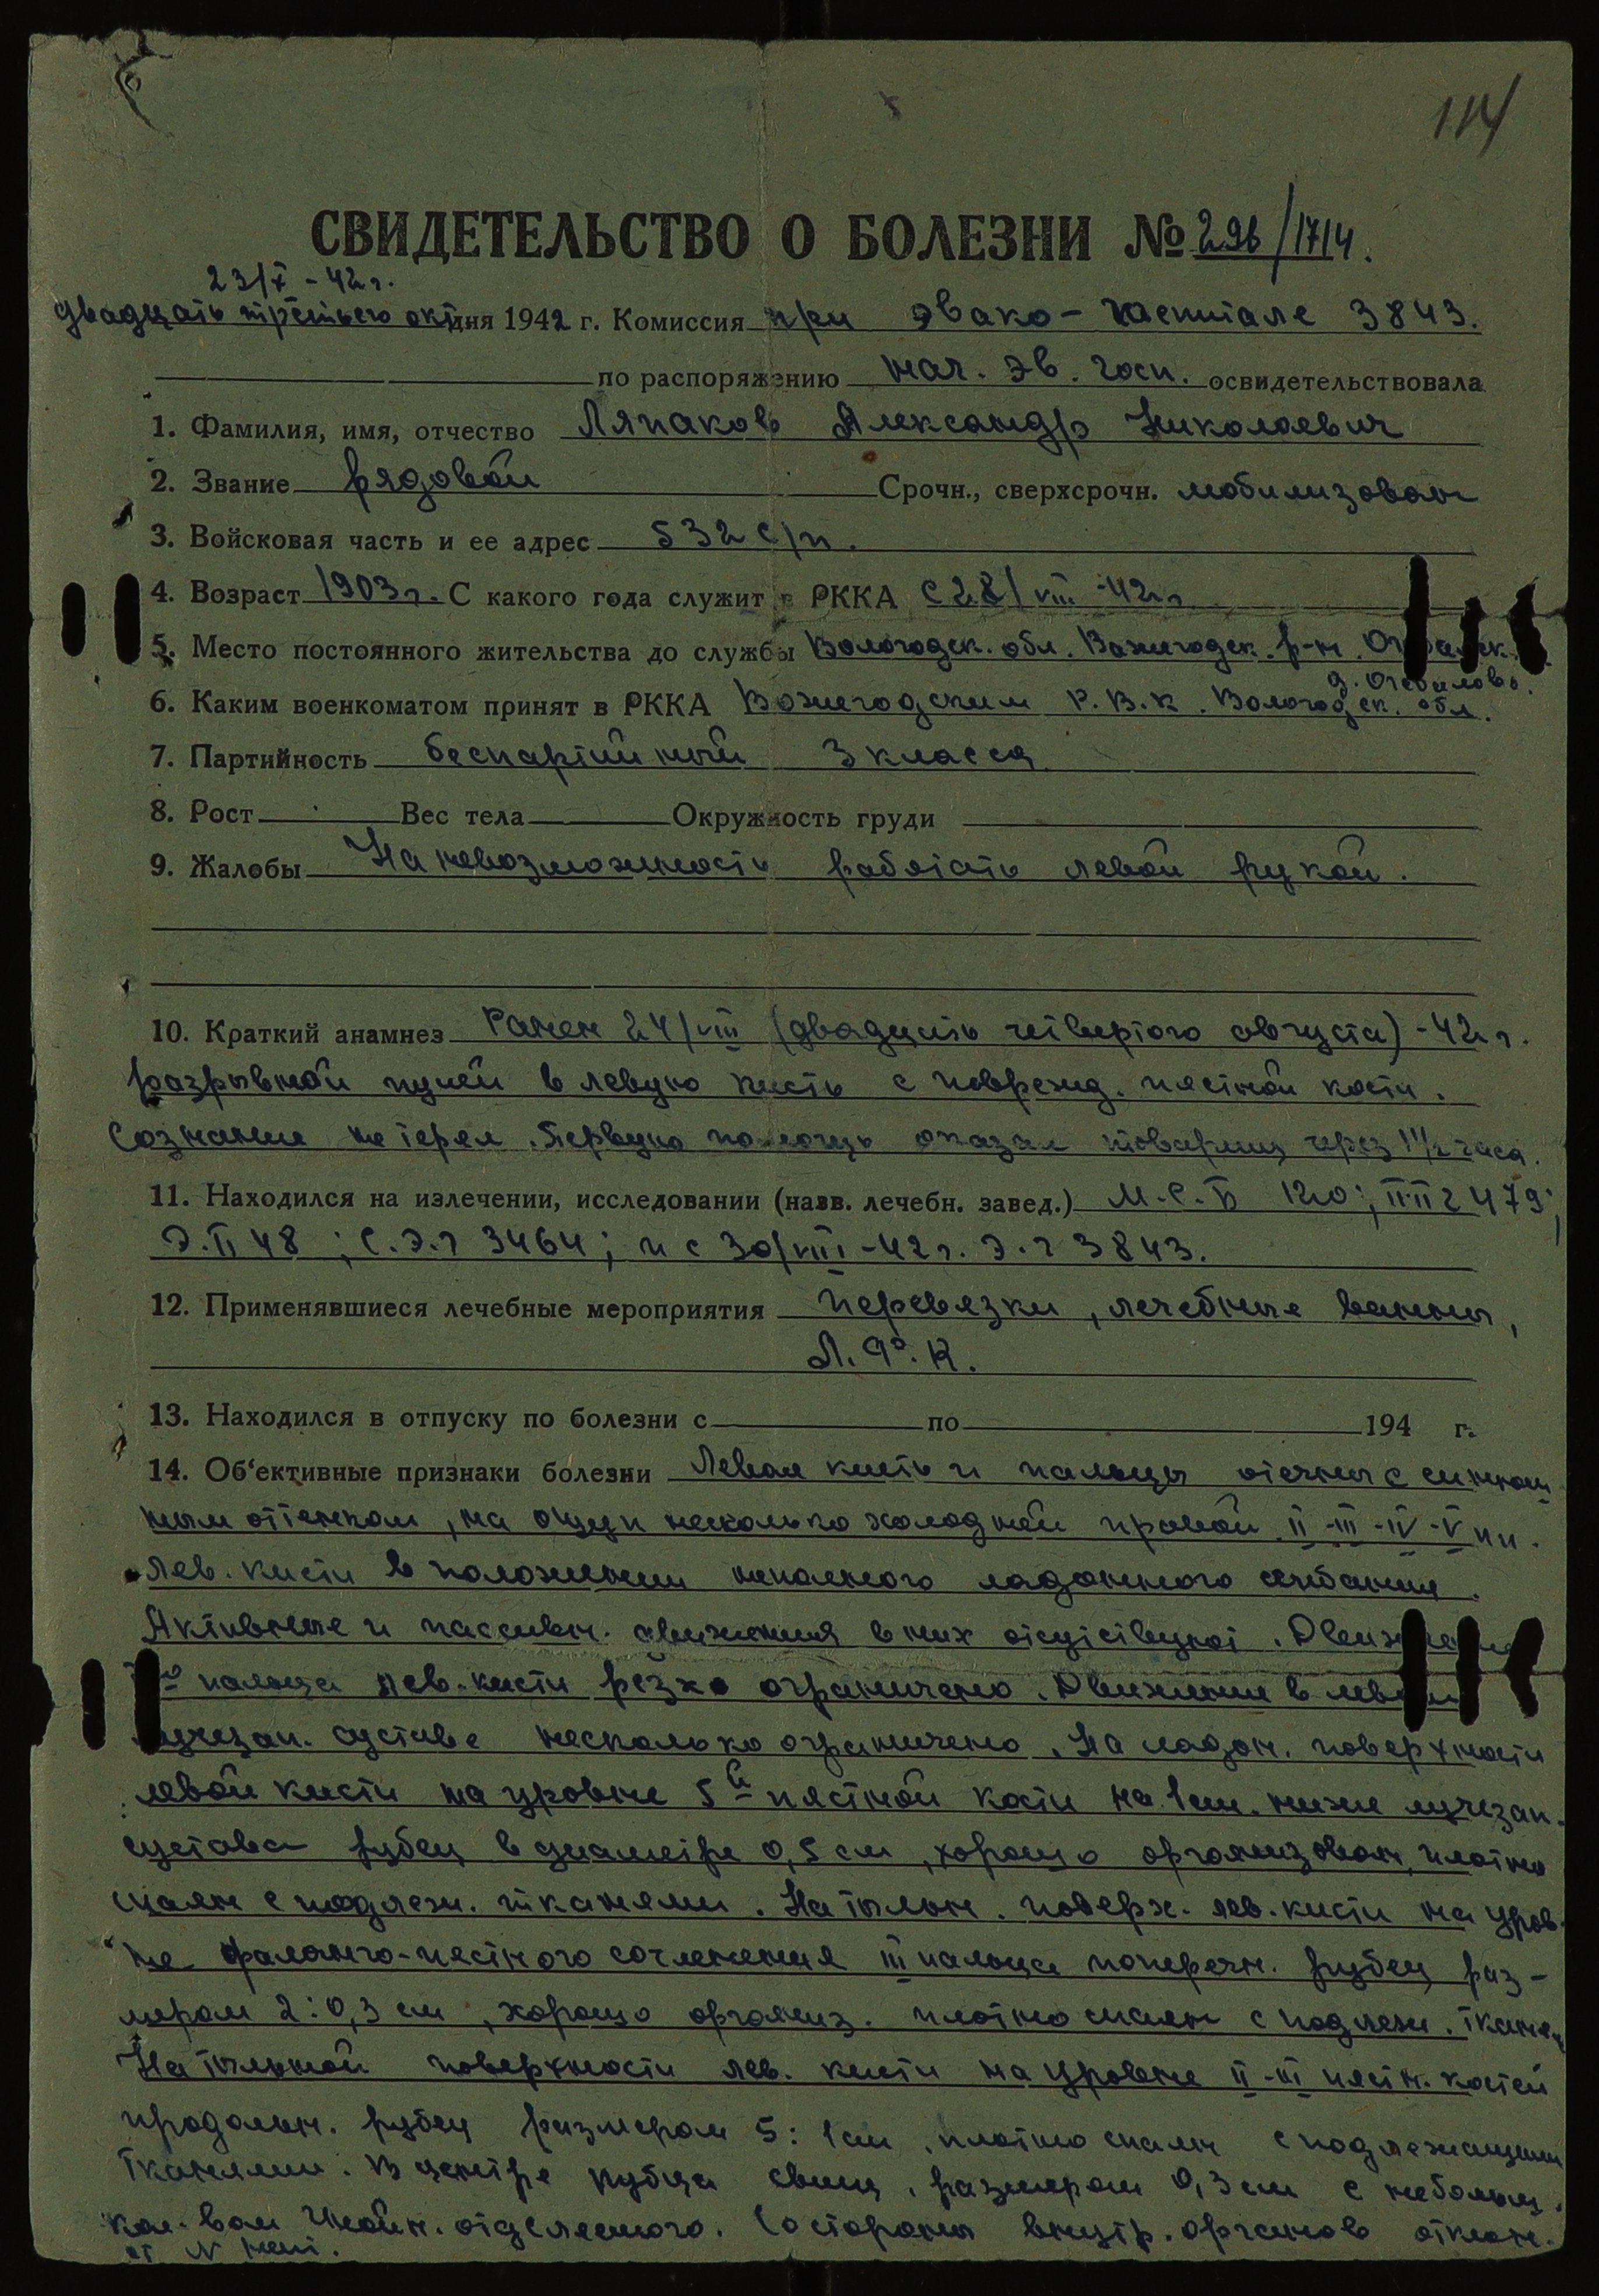 114
СВИДЕТЕЛЬСТВО О БОЛЕЗНИ № 296/1714.
23/X - 42 г.
двадцать третьего окт дня 1942 г. Комиссия при эвако-госпитале 3843.
по распоряжению нач. эв. госп. освидетельствовала
1. Фамилия, имя, отчество Ляпаков Александр Николаевич
2. Звание рядовой Срочн., сверхсрочн. мобилизован
3. Войсковая часть и ее адрес 532 с/п.
4. Возраст 1903 г. С какого года служит в РККА с 28/VIII -42 г
5. Место постоянного жительства до службы Вологодск. обл. Вожегодск. р-н.
д. Огибалово.
6. Каким военкоматом принят в РККА Вожегодским Р.В.К. Вологодск. обл.
7. Партийность беспартийный 3 класса
8. Рост Вес тела Окружность груди
9. Жалобы На невозможность работать левой рукой.
10. Краткий анамнез Ранен 24/VIII (двадцать четвертого августа) -42 г.
разрывной пулей в левую кисть с поврежд. пястной кости.
Сознание не терял. Первую помощь оказал товарищ через 1 1/2 часа.
11. Находился на излечении, исследовании (назв. лечебн. завед.) М.С.Б 120; ППГ 2479;
Э.П 48; С.Э.Г 3464; и с 30/VIII -42 г. Э.Г 3843.
12. Применявшиеся лечебные мероприятия перевязки, лечебные ванны,
Л.Ф.К.
13. Находился в отпуску по болезни с по 194 г.
14. Об'ективные признаки болезни Левая кисть и пальцы отечны с синюш
ным оттенком, на ощуп несколько холодней правой. II-III-IV-V пп.
лев. кисти в положении неполного ладонного сгибания.
Активные и пассивн. движения в них отсутствуют.
пальца лев. кисти резко ограничено. Движение в левом
лучезап. суставе несколько ограничено. На ладон. поверхности
левой кисти на уровне 5й пястной кости на 1 см. ниже лучезап.
сустава рубец в диаметре 0,5 см, хорошо организован, плотно
спаян с подлеж. тканями. На тыльн. поверх. лев. кисти на уров-
не фалонго-пястного сочленения III пальца поперечн. рубец раз-
мером 2:0,3 см, хорошо организ. плотно спаян с подлеж. тканям
На тыльной поверхности лев. кисти на уровне II-III пястн. костей
продольн. рубец размером 5:1 см, плотно спаян с подлежащими
тканями. В центре рубца свищ, размером 0,3 см с небольш.
кол-вом гнойн. отделяемого. Со стороны внутр. органов отклон.
от N нет.